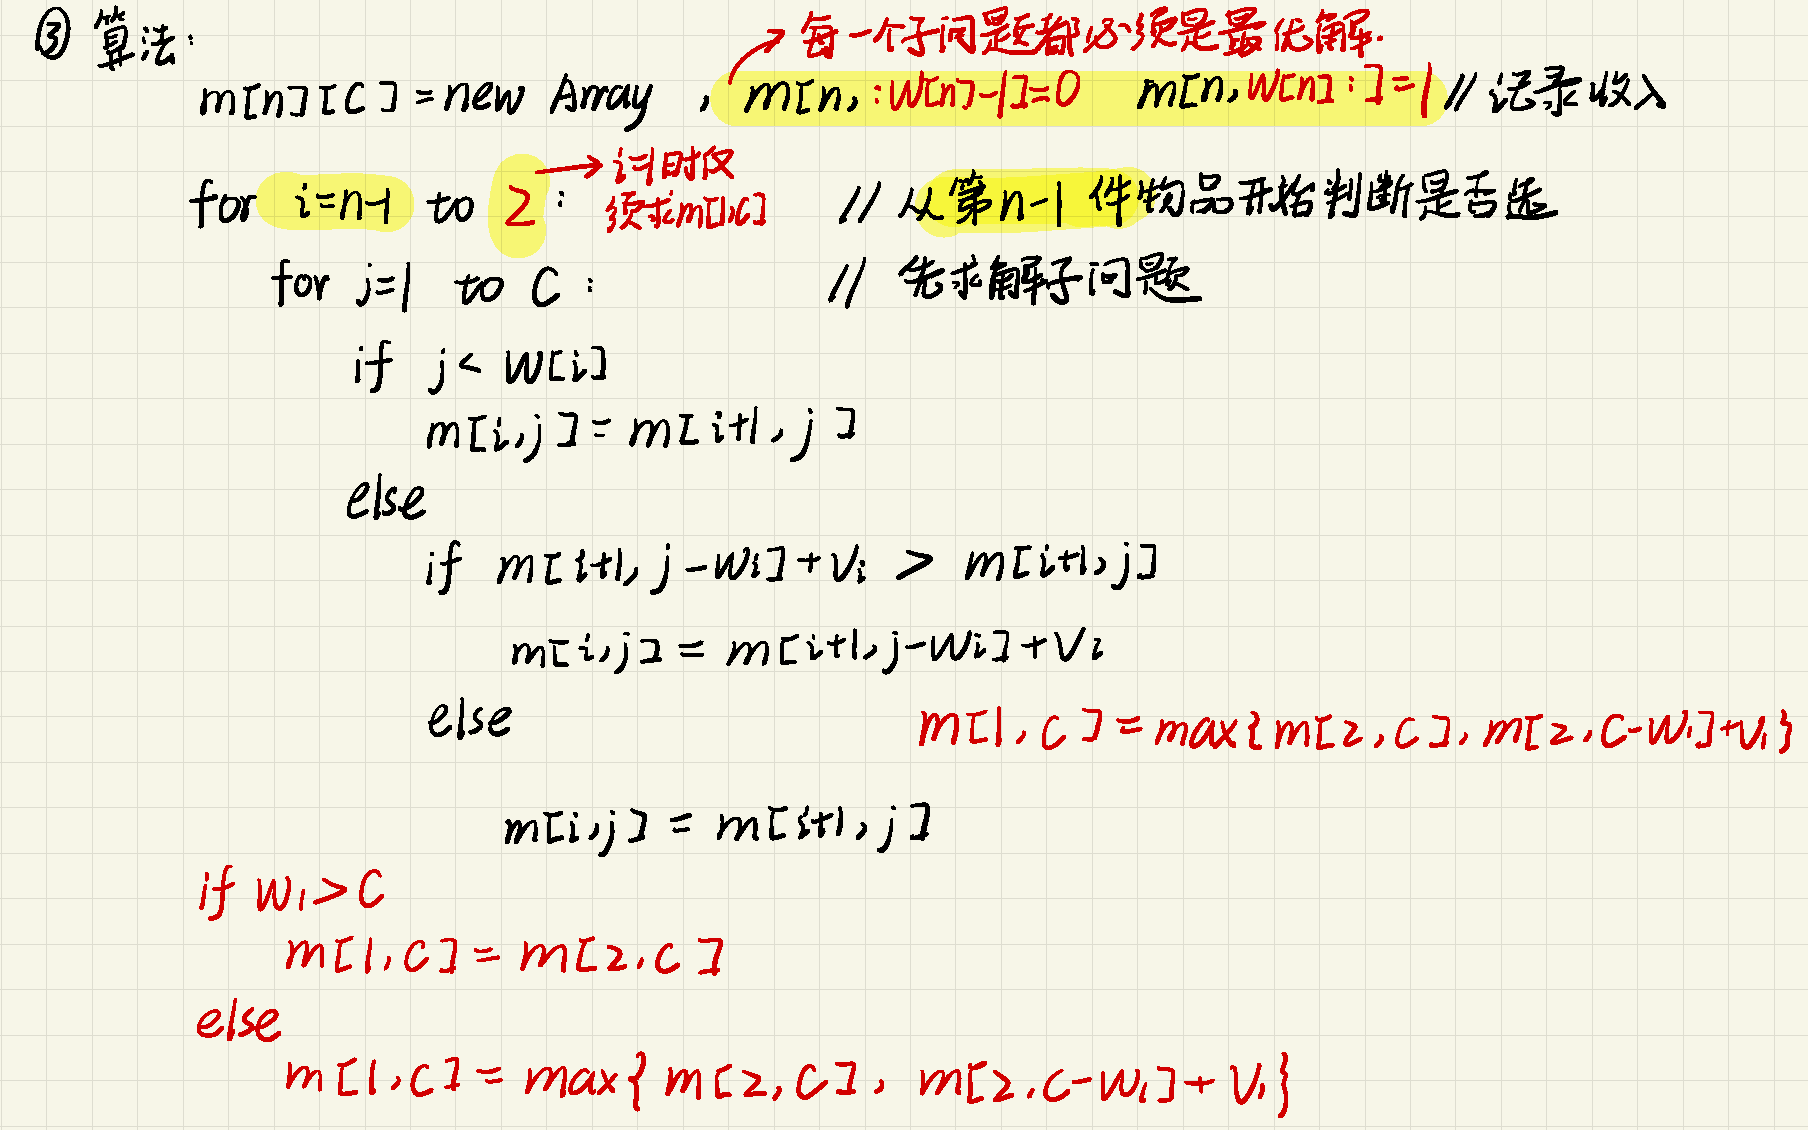 ③ 算法:
→ 每一个子问题都必须是最优解.
m[n][C] = new Array , m[n, :W[n]-1]=0 m[n, W[n]:]=1 // 记录收入
for i=n-1 to 2 : // 从第n-1件物品开始判断是否选
→ i=1时仅
须求m[1,C]
for j=1 to C : // 先求解子问题
if j < W[i]
m[i,j] = m[i+1, j]
else
if m[i+1, j-Wi]+Vi > m[i+1, j]
m[i,j] = m[i+1, j-Wi]+Vi
else
m[1, C] = max{m[2, C], m[2, C-W1]+V1}
m[i,j] = m[i+1, j]
if W1 > C
m[1, C] = m[2, C]
else
m[1, C] = max{ m[2, C], m[2, C-W1]+ V1}